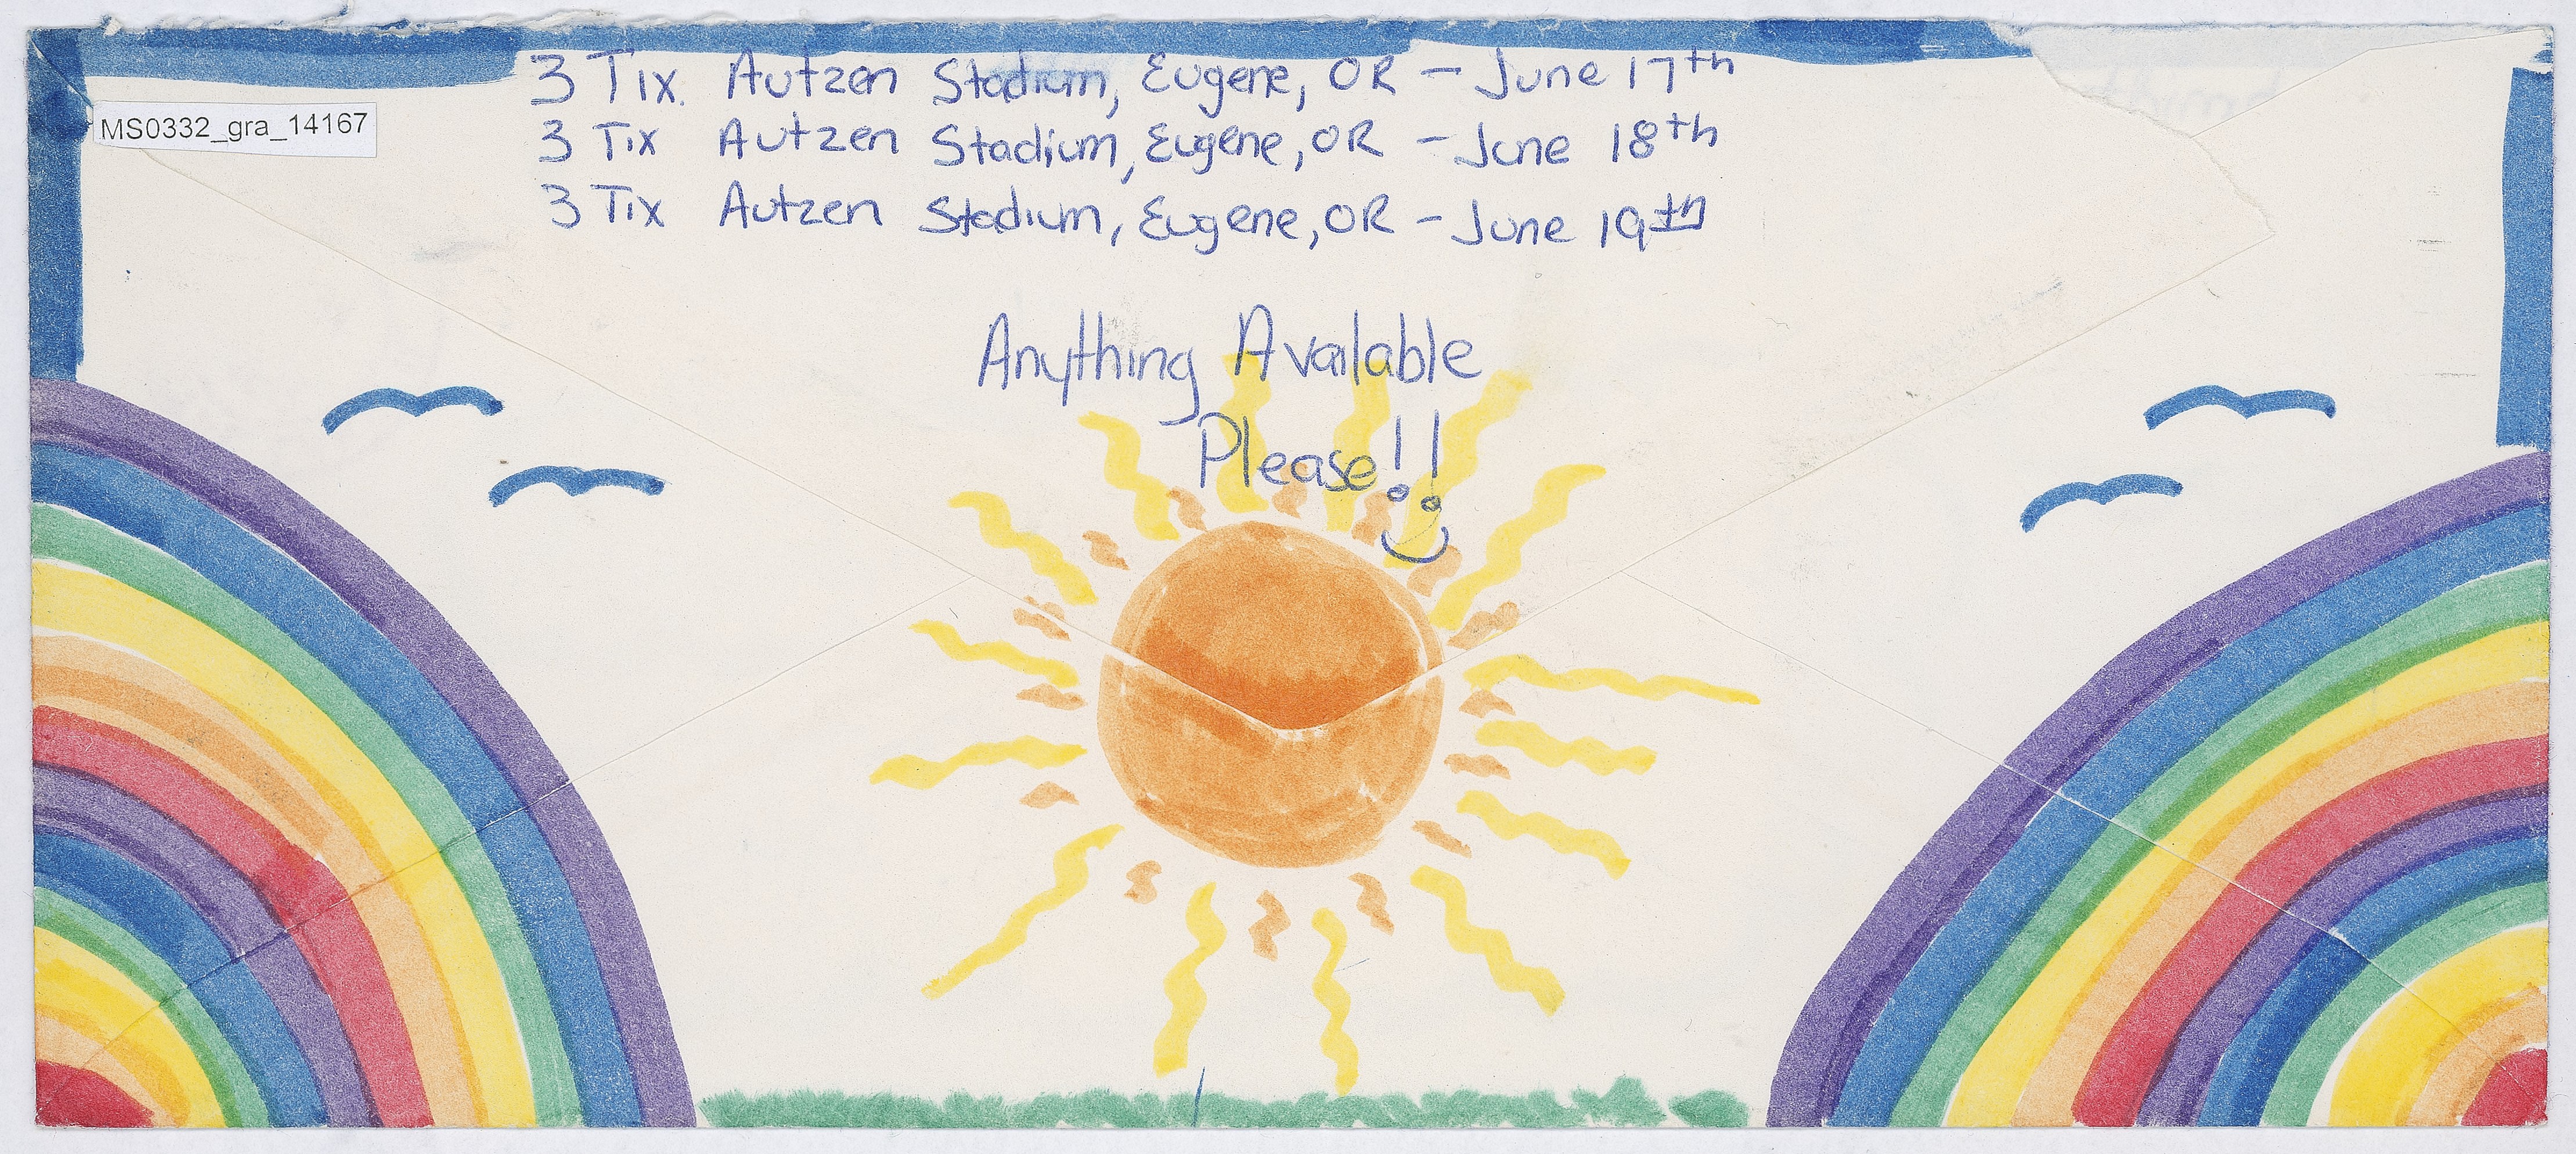 3 Tix. Autzen Stadium, Eugene, OR - June 17th
MS0332_gra_14167
3 Tix Autzen Stadium, Eugene, OR - June 18th
3 Tix Autzen Stadium, Eugene, OR - June 19th
Anything Available
Please!!